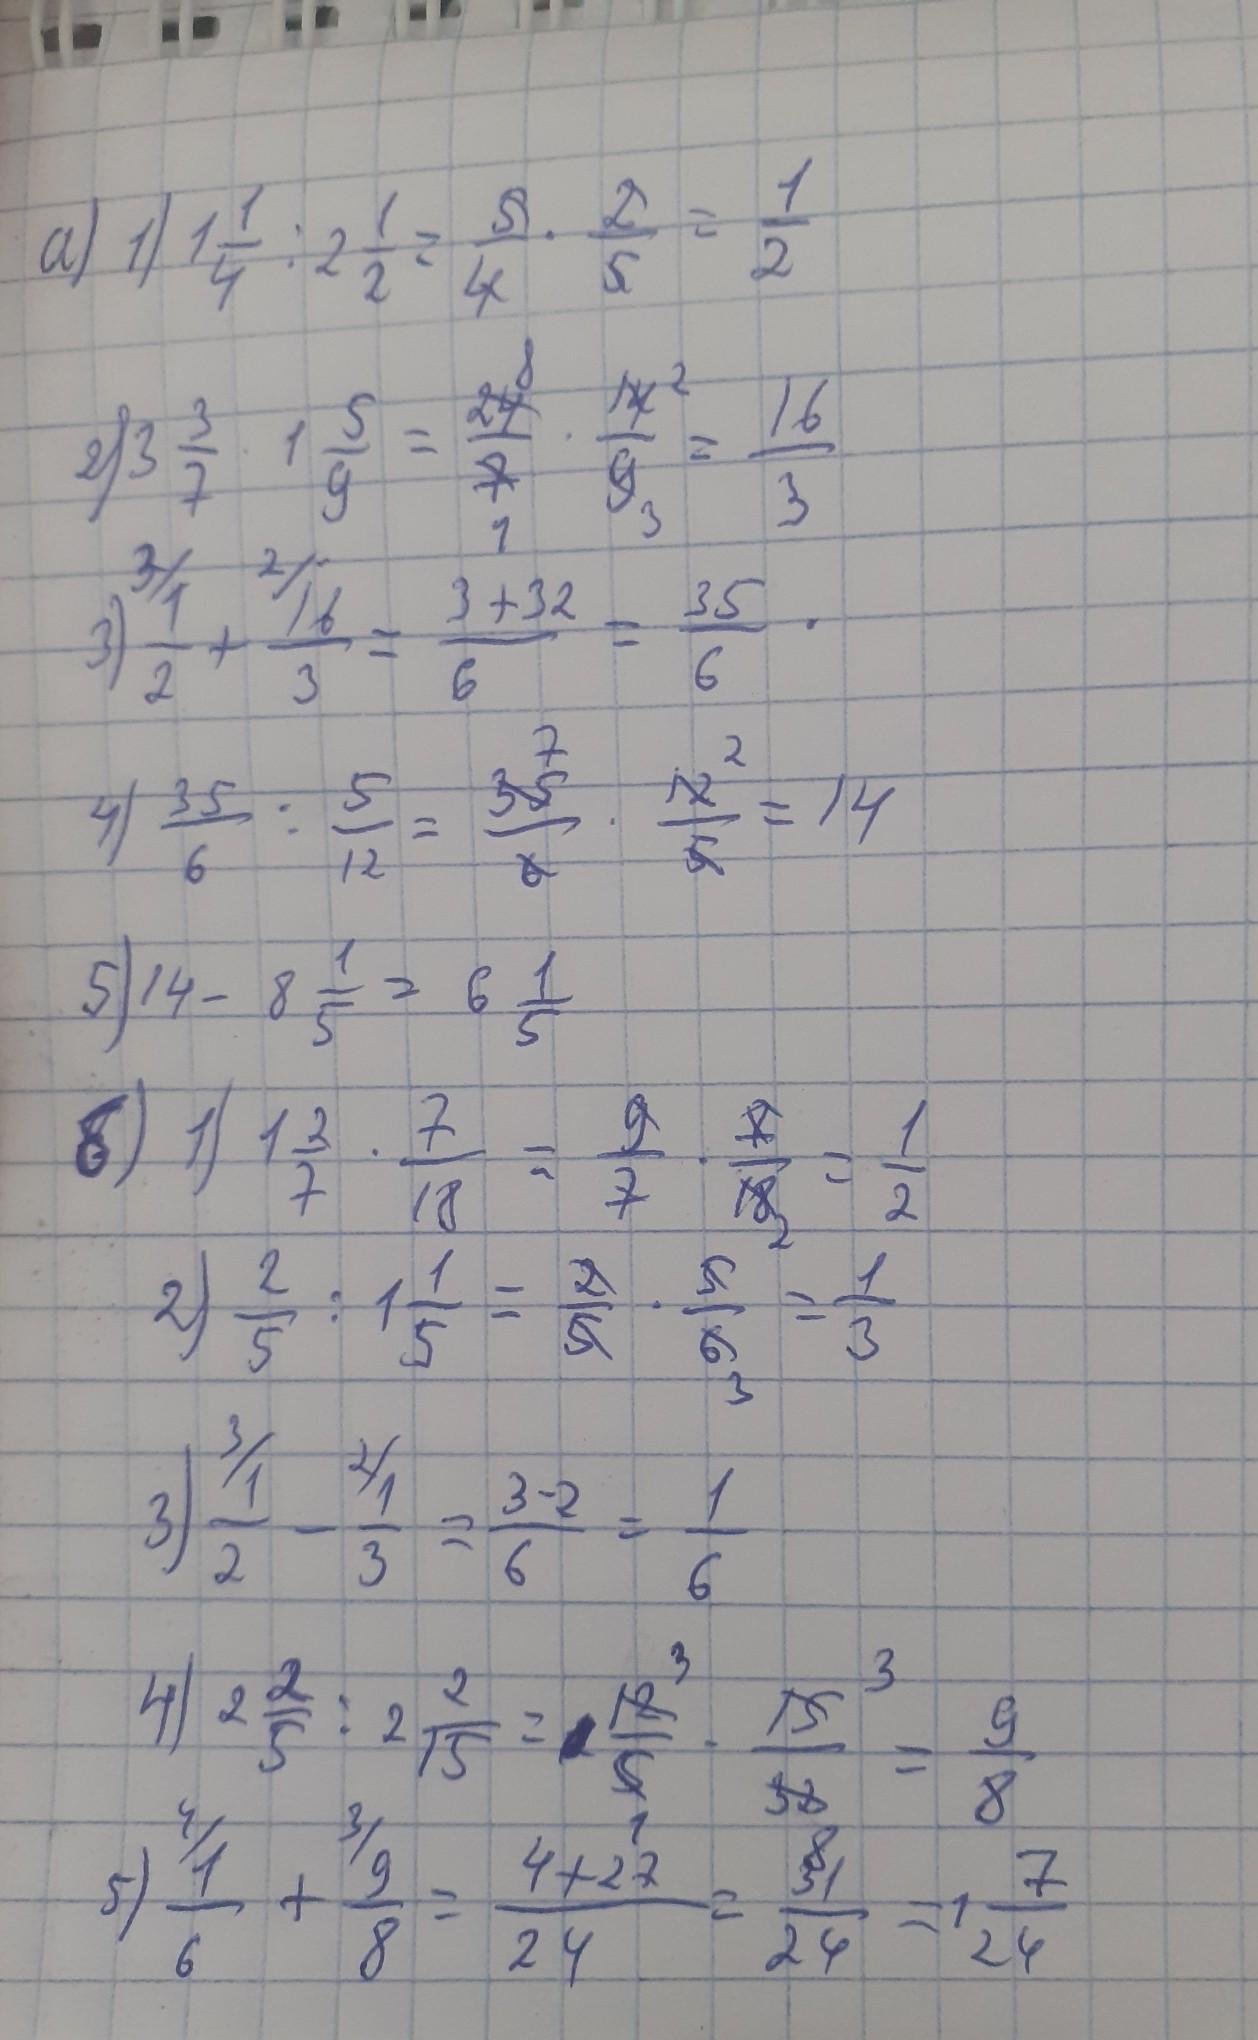 а) 1) 1 1/4 : 2 1/2 = 5/4 · 2/5 = 1/2
2) 3 3/7 · 1 5/9 = 24 8/7 1 · 14 2/9 3 = 16/3
3) 3/ 1/2 + 2/ 16/3 = 3+32/6 = 35/6 ·
4) 35/6 : 5/12 = 35 7/6 · 12 2/5 = 14
5) 14 - 8 1/5 = 6 1/5
б) 1) 1 2/7 · 7/18 = 9/7 · 7/18 2 = 1/2
2) 2/5 : 1 1/5 = 2/5 · 5/6 3 = 1/3
3) 3/ 1/2 - 2/ 1/3 = 3-2/6 = 1/6
4) 2 2/5 : 2 2/15 = 12 3/5 1 · 15 3/32 8 = 9/8
5) 4/ 1/6 + 3/ 9/8 = 4+27/24 = 31/24 = 1 7/24